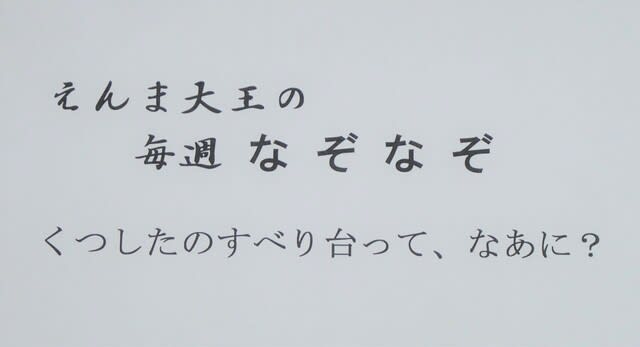 えんま大王の
毎週 なぞなぞ
くつしたのすべり台って、なあに？